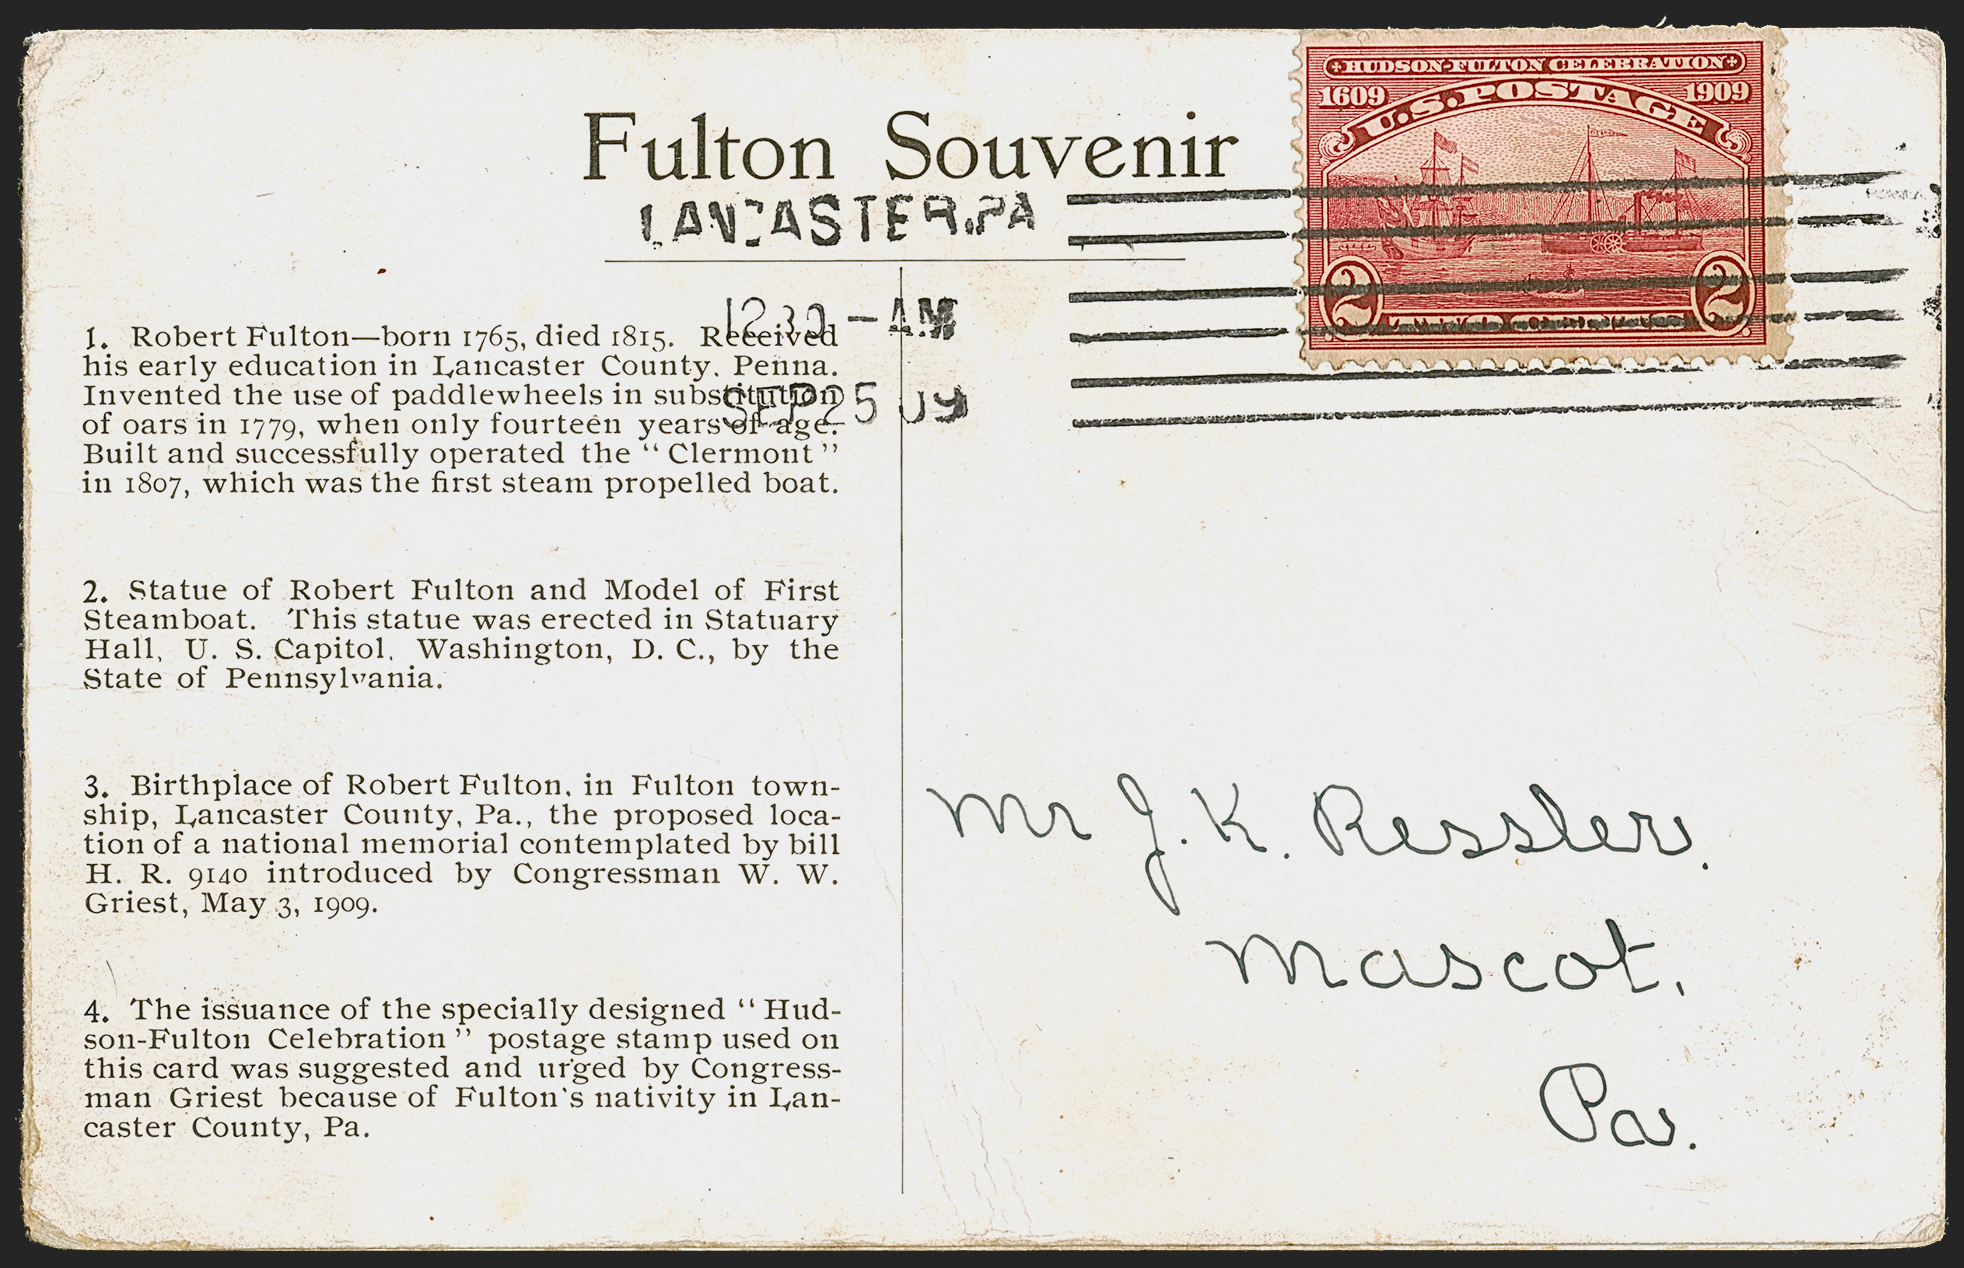 HUDSON-FULTON CELEBRATION
1609 1909
U.S. POSTAGE
2 2
TWO CENTS
Fulton Souvenir
LANCASTER, PA
1230-AM
SEP 25 09
1. Robert Fulton—born 1765, died 1815. Received
his early education in Lancaster County, Penna.
Invented the use of paddlewheels in substitution
of oars in 1779, when only fourteen years of age.
Built and successfully operated the “Clermont”
in 1807, which was the first steam propelled boat.
2. Statue of Robert Fulton and Model of First
Steamboat. This statue was erected in Statuary
Hall, U. S. Capitol, Washington, D. C., by the
State of Pennsylvania.
3. Birthplace of Robert Fulton, in Fulton town-
ship, Lancaster County, Pa., the proposed loca-
tion of a national memorial contemplated by bill
H. R. 9140 introduced by Congressman W. W.
Griest, May 3, 1909.
4. The issuance of the specially designed “Hud-
son-Fulton Celebration” postage stamp used on
this card was suggested and urged by Congress-
man Griest because of Fulton's nativity in Lan-
caster County, Pa.
Mr J. K. Ressler.
Mascot,
Pa.